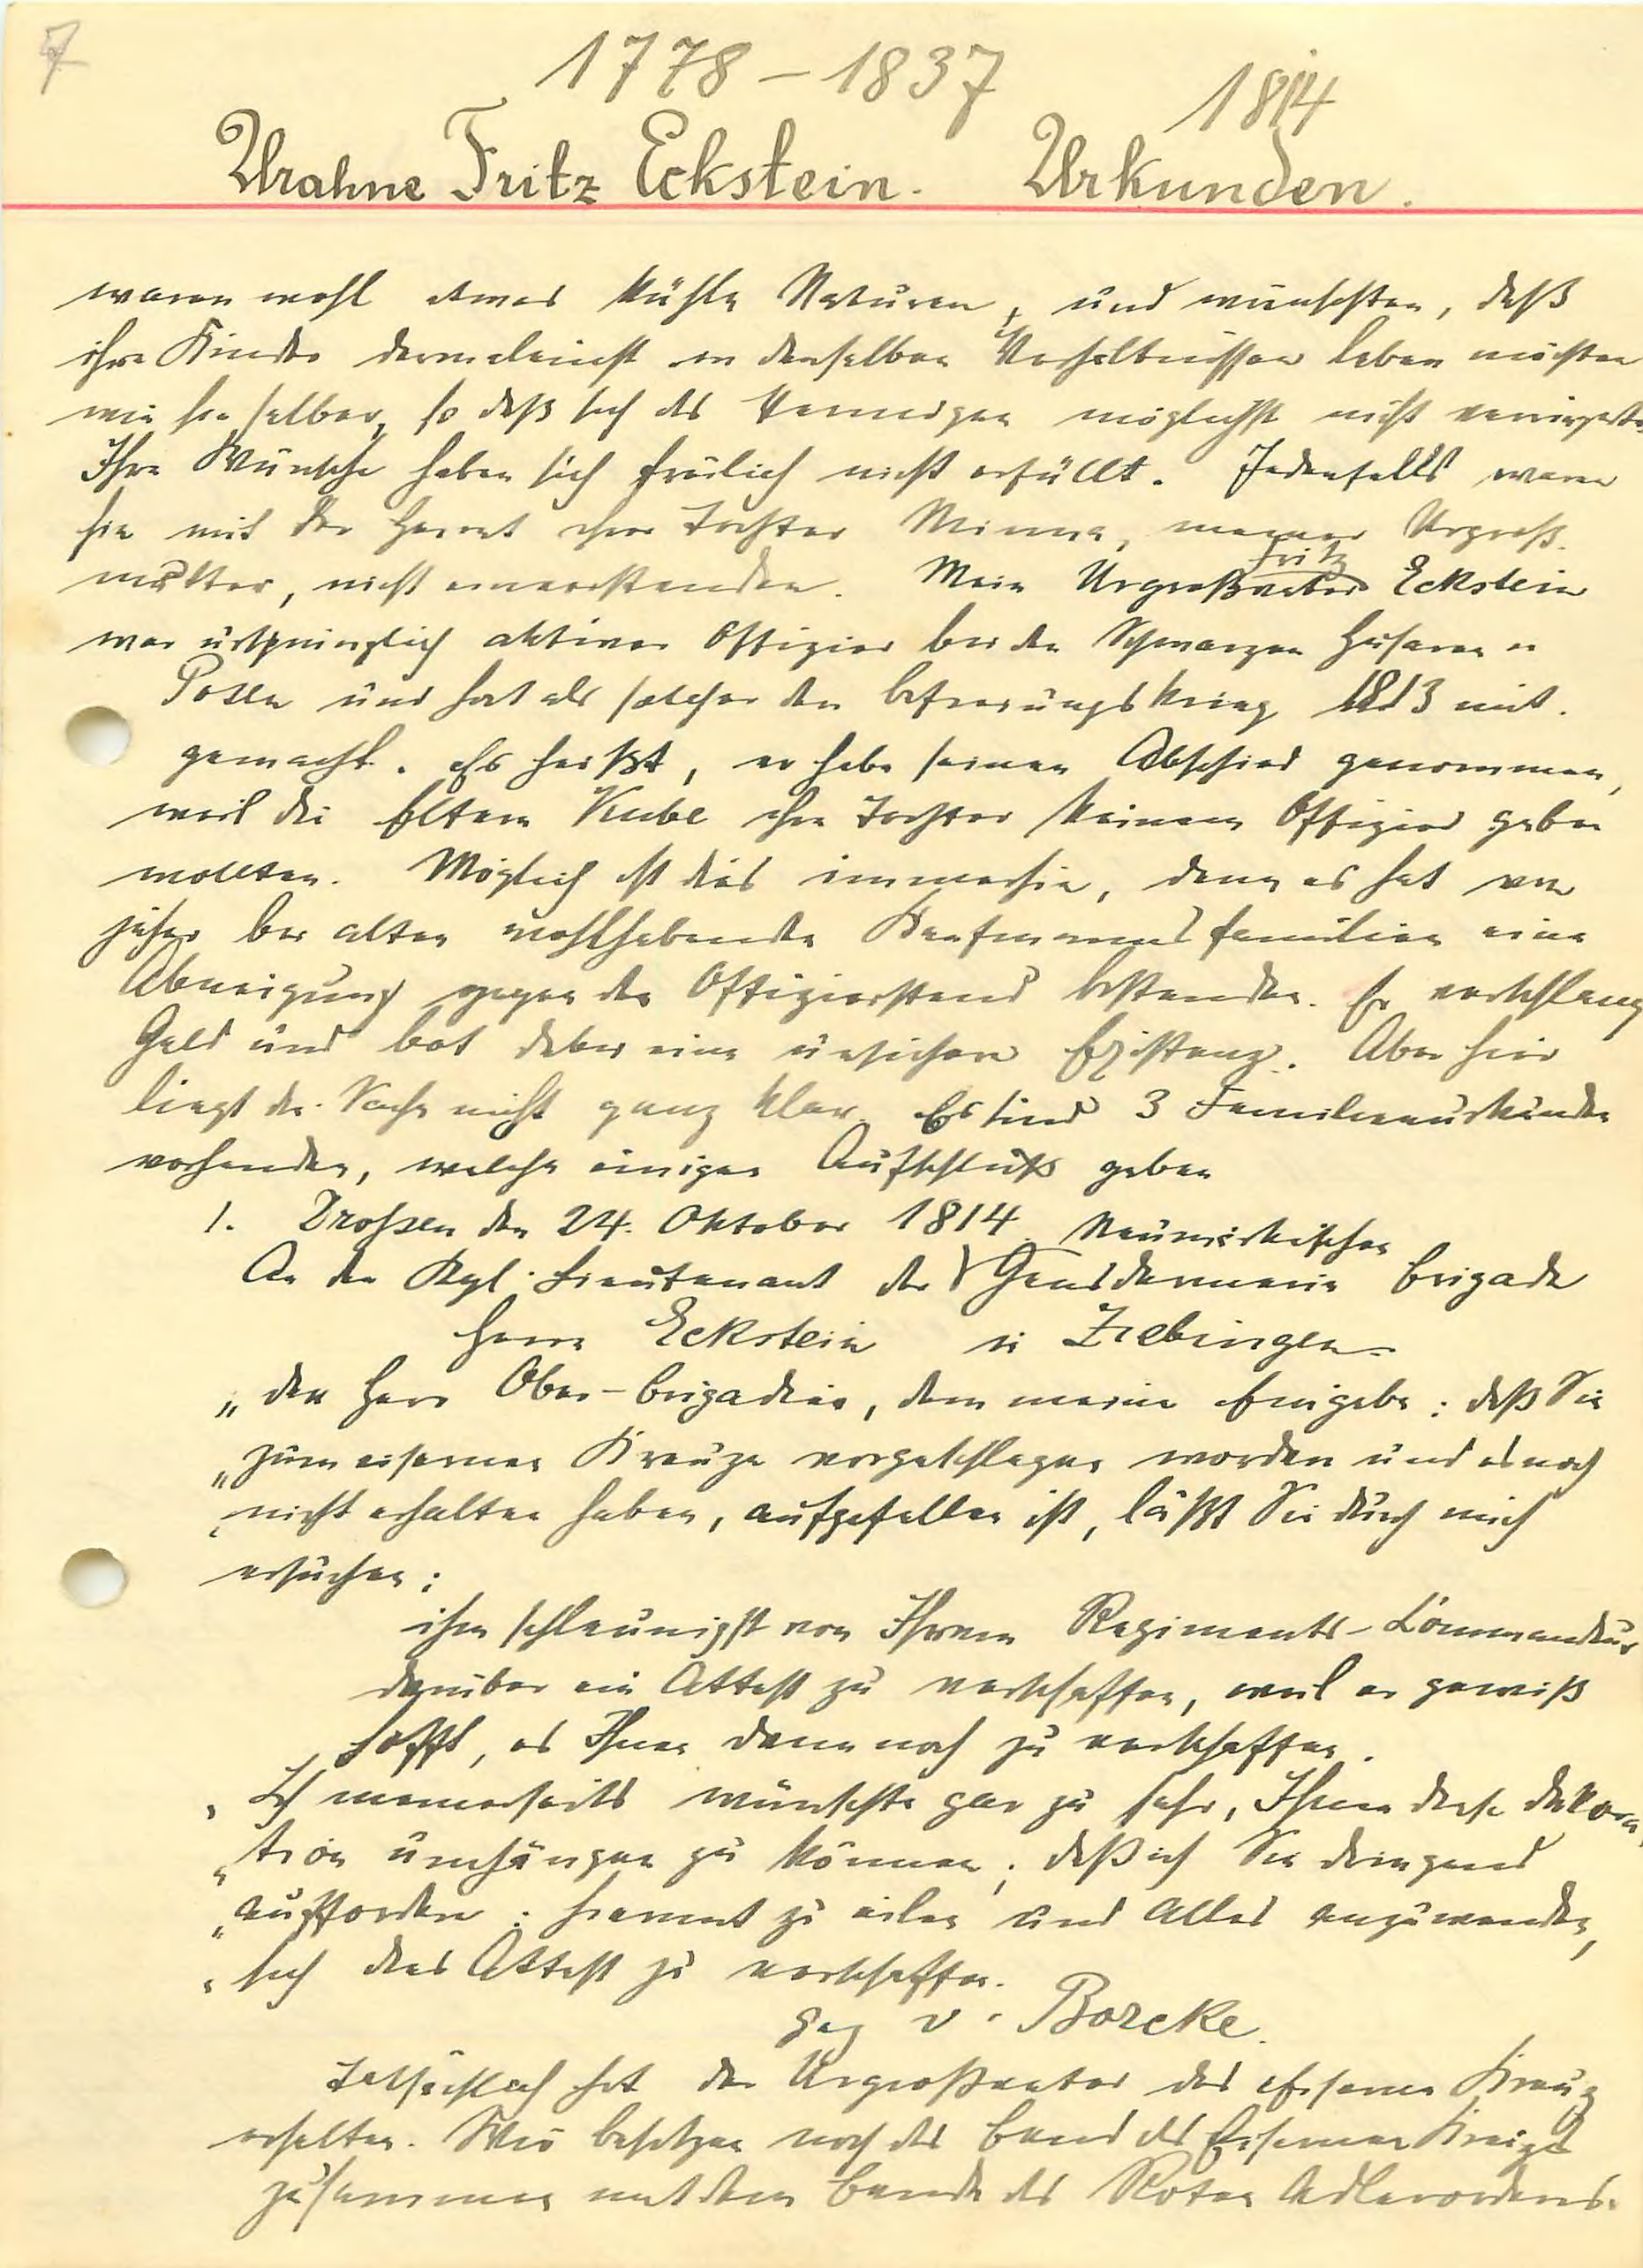 7
1778 – 1837
1814
Urahne Fritz Eckstein. Urkunden.
waren wohl etwas kühle Naturen, und wünschten, daß
ihre Kinder dermaleinst in denselben Verhältnissen leben möchten
wie sie selber, so daß sich das Vermögen möglichst nicht verringerte.
Ihre Wünsche haben sich freilich nicht erfüllt. Jedenfalls waren
sie mit der Heirat ihrer Tochter Minna, meiner Urgroß-
mutter, nicht einverstanden. Mein Urgroßvater Fritz Eckstein
war ursprünglich aktiver Offizier bei den Schwarzen Husaren in
Posen und hat als solcher den Befreiungskrieg 1813 mit-
gemacht. Es heißt, er habe seinen Abschied genommen,
weil die Eltern Kube ihre Tochter keinem Offizier geben
wollten. Möglich ist dies immerhin, denn es hat von
jeher bei alten wohlhabenden Kaufmannsfamilien eine
Abneigung gegen den Offizierstand bestanden. Er verschlang
Geld und bot dabei eine unsichere Existenz. Aber hier
liegt die Sache nicht ganz klar. Es sind 3 Familienurkunden
vorhanden, welche einigen Aufschluß geben
1. Drossen den 24. Oktober 1814.
An den Kgl. Lieutenant der Neumärkischen Gensdarmerie Brigade
Herrn Eckstein in Ziebingen
„den Herr Ober-Brigadier, dem meine Eingabe: daß Sie
„zum eisernen Kreuze vorgeschlagen worden und es noch
„nicht erhalten haben, aufgefallen ist, läßt Sie durch mich
ersuchen:
ihm schleunigst von Ihrem Regiments-Kommandeur
darüber ein Attest zu verschaffen, weil er gewiß
hofft, es Ihnen dennoch zu verschaffen.
„Ich meinerseits wünschte gar zu sehr, Ihnen diese Dekora-
„tion umhängen zu können, daß ich Sie dringend
„auffordere: hiermit zu eilen und Alles anzuwenden,
„sich dies Attest zu verschaffen.
gez v. Borcke.
Tatsächlich hat der Urgroßvater das eiserne Kreuz
erhalten. Wir besitzen noch das Band des Eisernen Kreuzes
zusammen mit dem Bande des Roten Adlerordens.